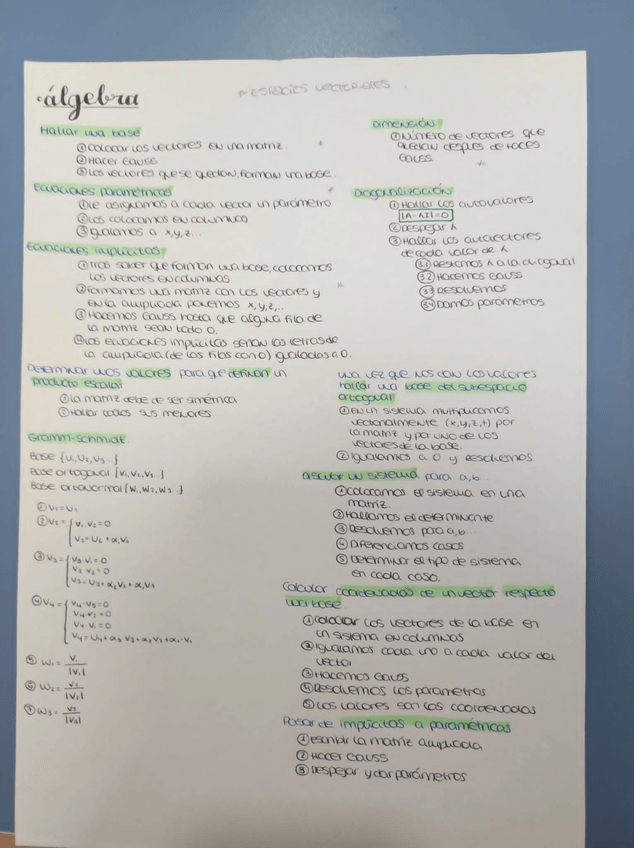 álgebra
* ESPACIOS VECTORIALES
Hallar una base
① Colocar los vectores en una matriz.
② Hacer Gauss
③ Los vectores que se quedan, forman una base.
Ecuaciones paramétricas
① Le asignamos a cada vector un parámetro
② Los colocamos en columnas
③ Igualamos a x,y,z...
Ecuaciones implícitas
① Tras saber que forman una base, colocamos
los vectores en columnas
② Formamos una matriz con los vectores y
en la ampliada ponemos x,y,z,..
③ Hacemos Gauss hasta que alguna fila de
la matriz sean todo 0.
④ Las ecuaciones implícitas serán las letras de
la ampliada (de las filas con 0) igualadas a 0.
Determinar unos valores para que definan un
producto escalar
① La matriz debe de ser simétrica
② Hallar todos sus menores
Gramm-Schmidt
Base {u₁,u₂,u₃...}
Base ortogonal {v₁,v₂,v₃...}
Base ortonormal {w₁,w₂,w₃...}
① v₁=u₁
② v₂= { v₁·v₂=0
v₂=u₂+α₁v₁
③ v₃= { v₃·v₁=0
v₃·v₂=0
v₃=u₃+α₂v₂+α₁v₁
④ v₄= { v₄·v₃=0
v₄·v₂=0
v₄·v₁=0
v₄=u₄+α₃v₃+α₂v₂+α₁·v₁
⑤ w₁= v₁/|v₁|
⑥ w₂= v₂/|v₂|
⑦ w₃= v₃/|v₃|
Dimensión
① Número de vectores que
quedan después de hacer
Gauss.
Diagonalización
① Hallar los autovalores
|A-λI|=0
② Despejar λ
③ Hallar los autovectores
de cada valor de λ
3.1 Restamos λ a la diagonal
3.2 Hacemos Gauss
3.3 Resolvemos
3.4 Damos parámetros
Una vez que nos dan los valores
hallar una base del subespacio
ortogonal
① En un sistema multiplicamos
vectorialmente (x,y,z,t) por
la matriz y por uno de los
vectores de la base.
② Igualamos a 0 y resolvemos
Discutir un sistema para a,b...
① Colocamos el sistema en una
matriz.
② Hallamos el determinante
③ Resolvemos para a,b...
④ Diferenciamos casos
⑤ Determinar el tipo de sistema
en cada caso.
Calcular coordenadas de un vector respecto
una base
① Colocar los vectores de la base en
un sistema en columnas
② Igualamos cada uno a cada valor del
vector
③ Hacemos Gauss
④ Resolvemos los parámetros
⑤ Los valores son las coordenadas
Pasar de implícitas a paramétricas
① Escribir la matriz ampliada
② Hacer Gauss
③ Despejar y dar parámetros